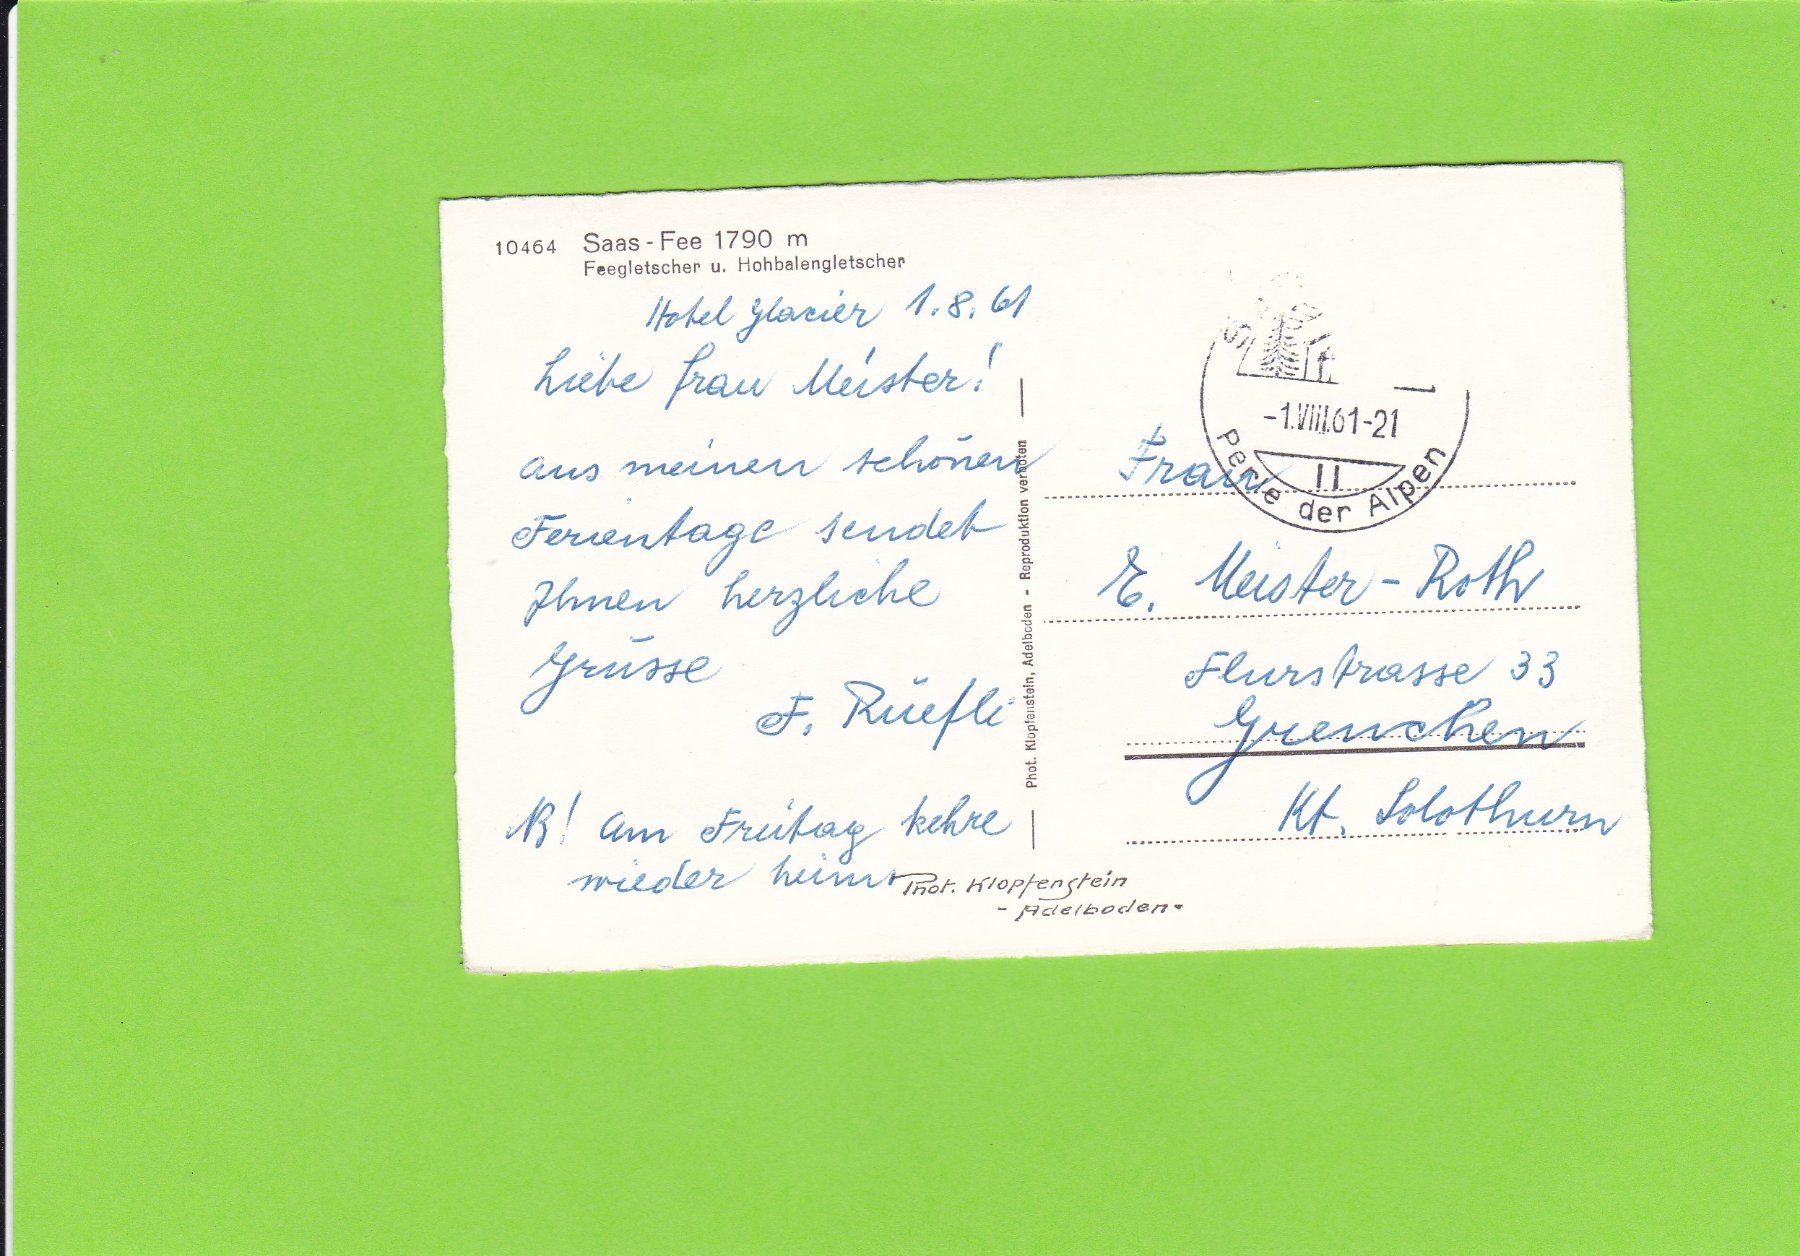 10464 Saas - Fee 1790 m
Feegletscher u. Hohbalengletscher
Hotel Glacier 1.8.61
Liebe Frau Meister!
Aus meinen schönen
Ferientage sendet
Ihnen herzliche
Grüsse
F. Rüefli
NB! Am Freitag kehre
wieder heim
Phot. Klopfenstein
- Adelboden -
Phot. Klopfenstein, Adelboden - Reproduktion verboten
-1.VIII.61-21
Perle der Alpen
Frau
E. Meister - Roth
Flurstrasse 33
Grenchen
Kt. Solothurn